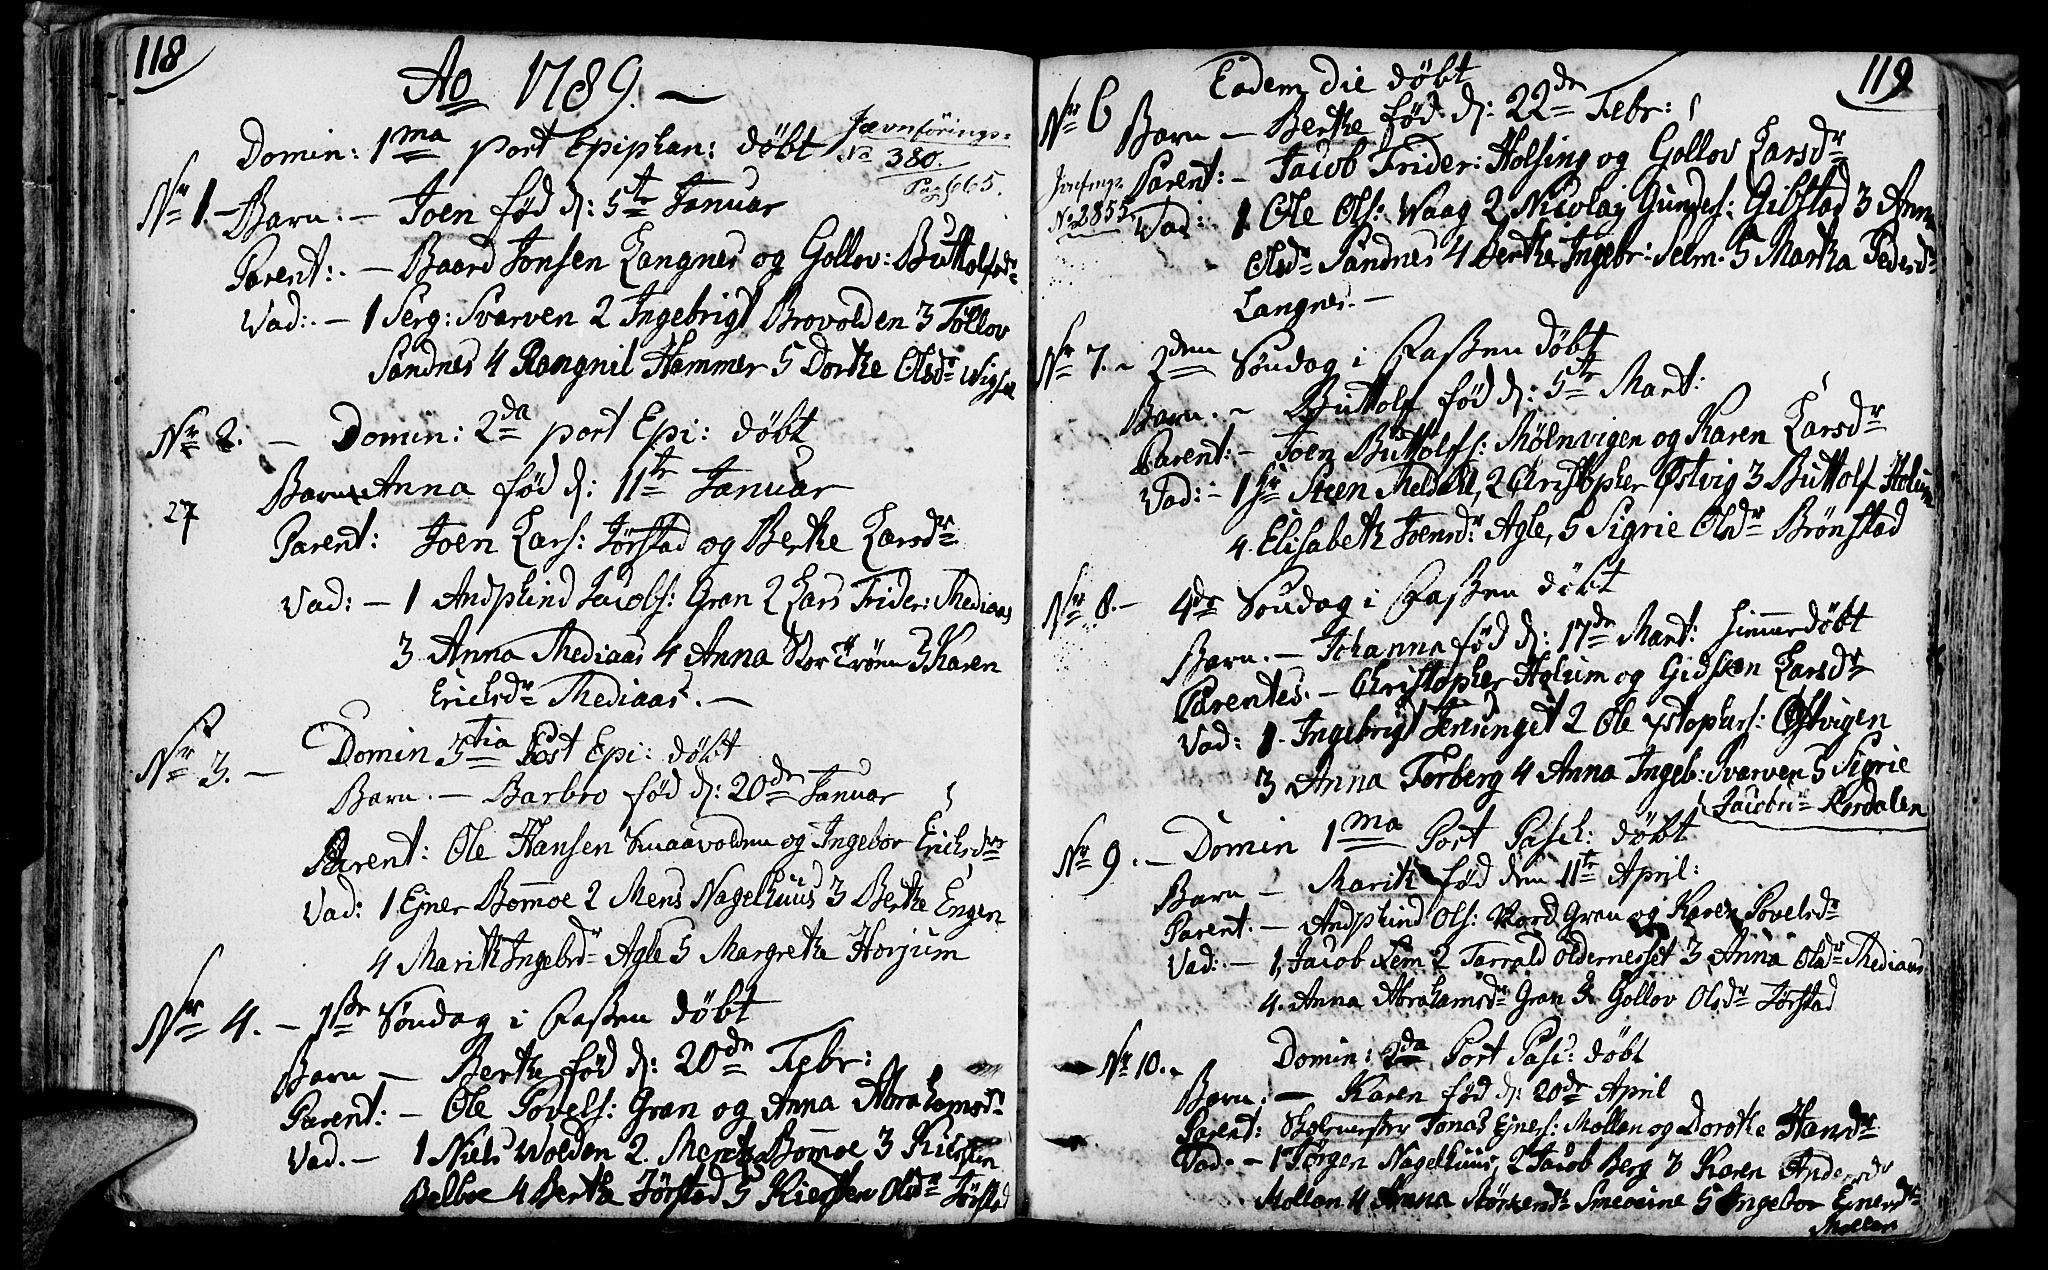 118
Ao 1789. —
Domin: 1ma post Epiphan: döbt
Jævnförings-
No 380.
Pag 665.
Nr 1. – Barn. – Joen föd d: 5te Januar
Parent:. – Baard Jonsen Langnes og Gollov: Buttolfsdr
Vad:. – 1 Serg: Svarven 2 Ingebrigt Brovolden 3 Föllov
Sandnes 4 Rangnil Hammer 5 Dorthe Olsdr
Nr 2. – Domin: 2da post Epi: döbt
Barn Anna föd d: 11te Januar
27
Parent: Joen Lars: Jörstad og Berthe Larsdr
Vad: – 1 Andphind Jacobs: Gran 2 Lars Frider: Mediaas
3 Anna Mediaas 4 Anna Stor 5 Karen
Erichsdr Mediaas. —
Nr 3. – Domin 3tia Post Epi: döbt
Barn. – Barbro föd d: 20de Januar
Parent: Ole Hansen Smaavolden og Ingebor Erichsdr
Vad: 1 Ejner Bomoe 2 Mens Nagelhuus 3 Berthe Engen
4 Marith Ingebrdr Agle 5 Margrethe Horjum
Nr 4. – 1ste Söndag i Fasten döbt
Barn – Berthe föd d: 20de Febr:
Parent: – Ole Povels: Gran og Anna Abrahamsdr
Vad. – 1 Niels Wolden 2. Bomoe 3 Kiersten
Belboe 4 Berthe Jörstad 5 Kiersten Olsdr Jörstad
119
Eadem die döbt
Nr 6 Barn – Berthe föd d: 22de Febr:
Parent: – Jacob Frider: Holsing og Gollov Larsdr
No 2855.
Vad: 1 Ole Ols: Waag 2 Nicolaj Gunders: Gibstad 3 Anna
Olsdr Sandnes 4 Berthe Ingebr: Selm. 5 Martha Pedersdr
Langnes. —
Nr 7. – 2den Söndag i Fasten döbt
Barn. – Buttolf föd d: 5te Mart:
Parent: – Joen Buttolfs: Mölnvigen og Karen Larsdr
Vad: – 1 Hr Steen Meldal, 2 Christopher Östvig 3 Buttolf Holum
4. Elisabeth Joensdr Agle, 5 Sigrie Olsdr Brönstad
Nr 8. – 4de Söndag i Fasten döbt
Barn. – Johanna föd d: 17de Mart: Himmerdöbt
Parentes. – Christopher Holum og Gidsken Larsdr
Vad: 1. Ingebrigt 2 Ole Xstophers: Östvigen
3 Anna Forberg 4 Anna Ingeb: Svarven 5 Sigrie
Jacobsdr
Nr 9. – Domin 1ma Post Pasch: döbt
Barn – Marith föd den 11te April:
Parent. – Andphind Ols: Nord Gran og Karen Povelsdr
Vad:. – 1, Jacob Lem 2 Tarrald Oldernesset 3 Anna Olsdr Mediaas
4. Anna Abrahamsdr Gran 5 Gollov Olsdr Jörstad
Nr 10. – Domin: 2da Post Pasc: döbt
Barn: – Karen föd d: 20de April
Parent: Skolemester Jonas Ejners: Mollan og Dorothe Hansdr
Vad. – 1 Jörgen Nagelhuus, 2 Jacob Berg 3 Karen Andersdr
Mollan 4 Anna 5 Ingebor Ejnersdr
Mollan